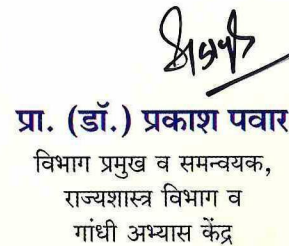 प्रा. (डॉ.) प्रकाश पवार
विभाग प्रमुख व समन्वयक,
राज्यशास्त्र विभाग व
गांधी अभ्यास केंद्र